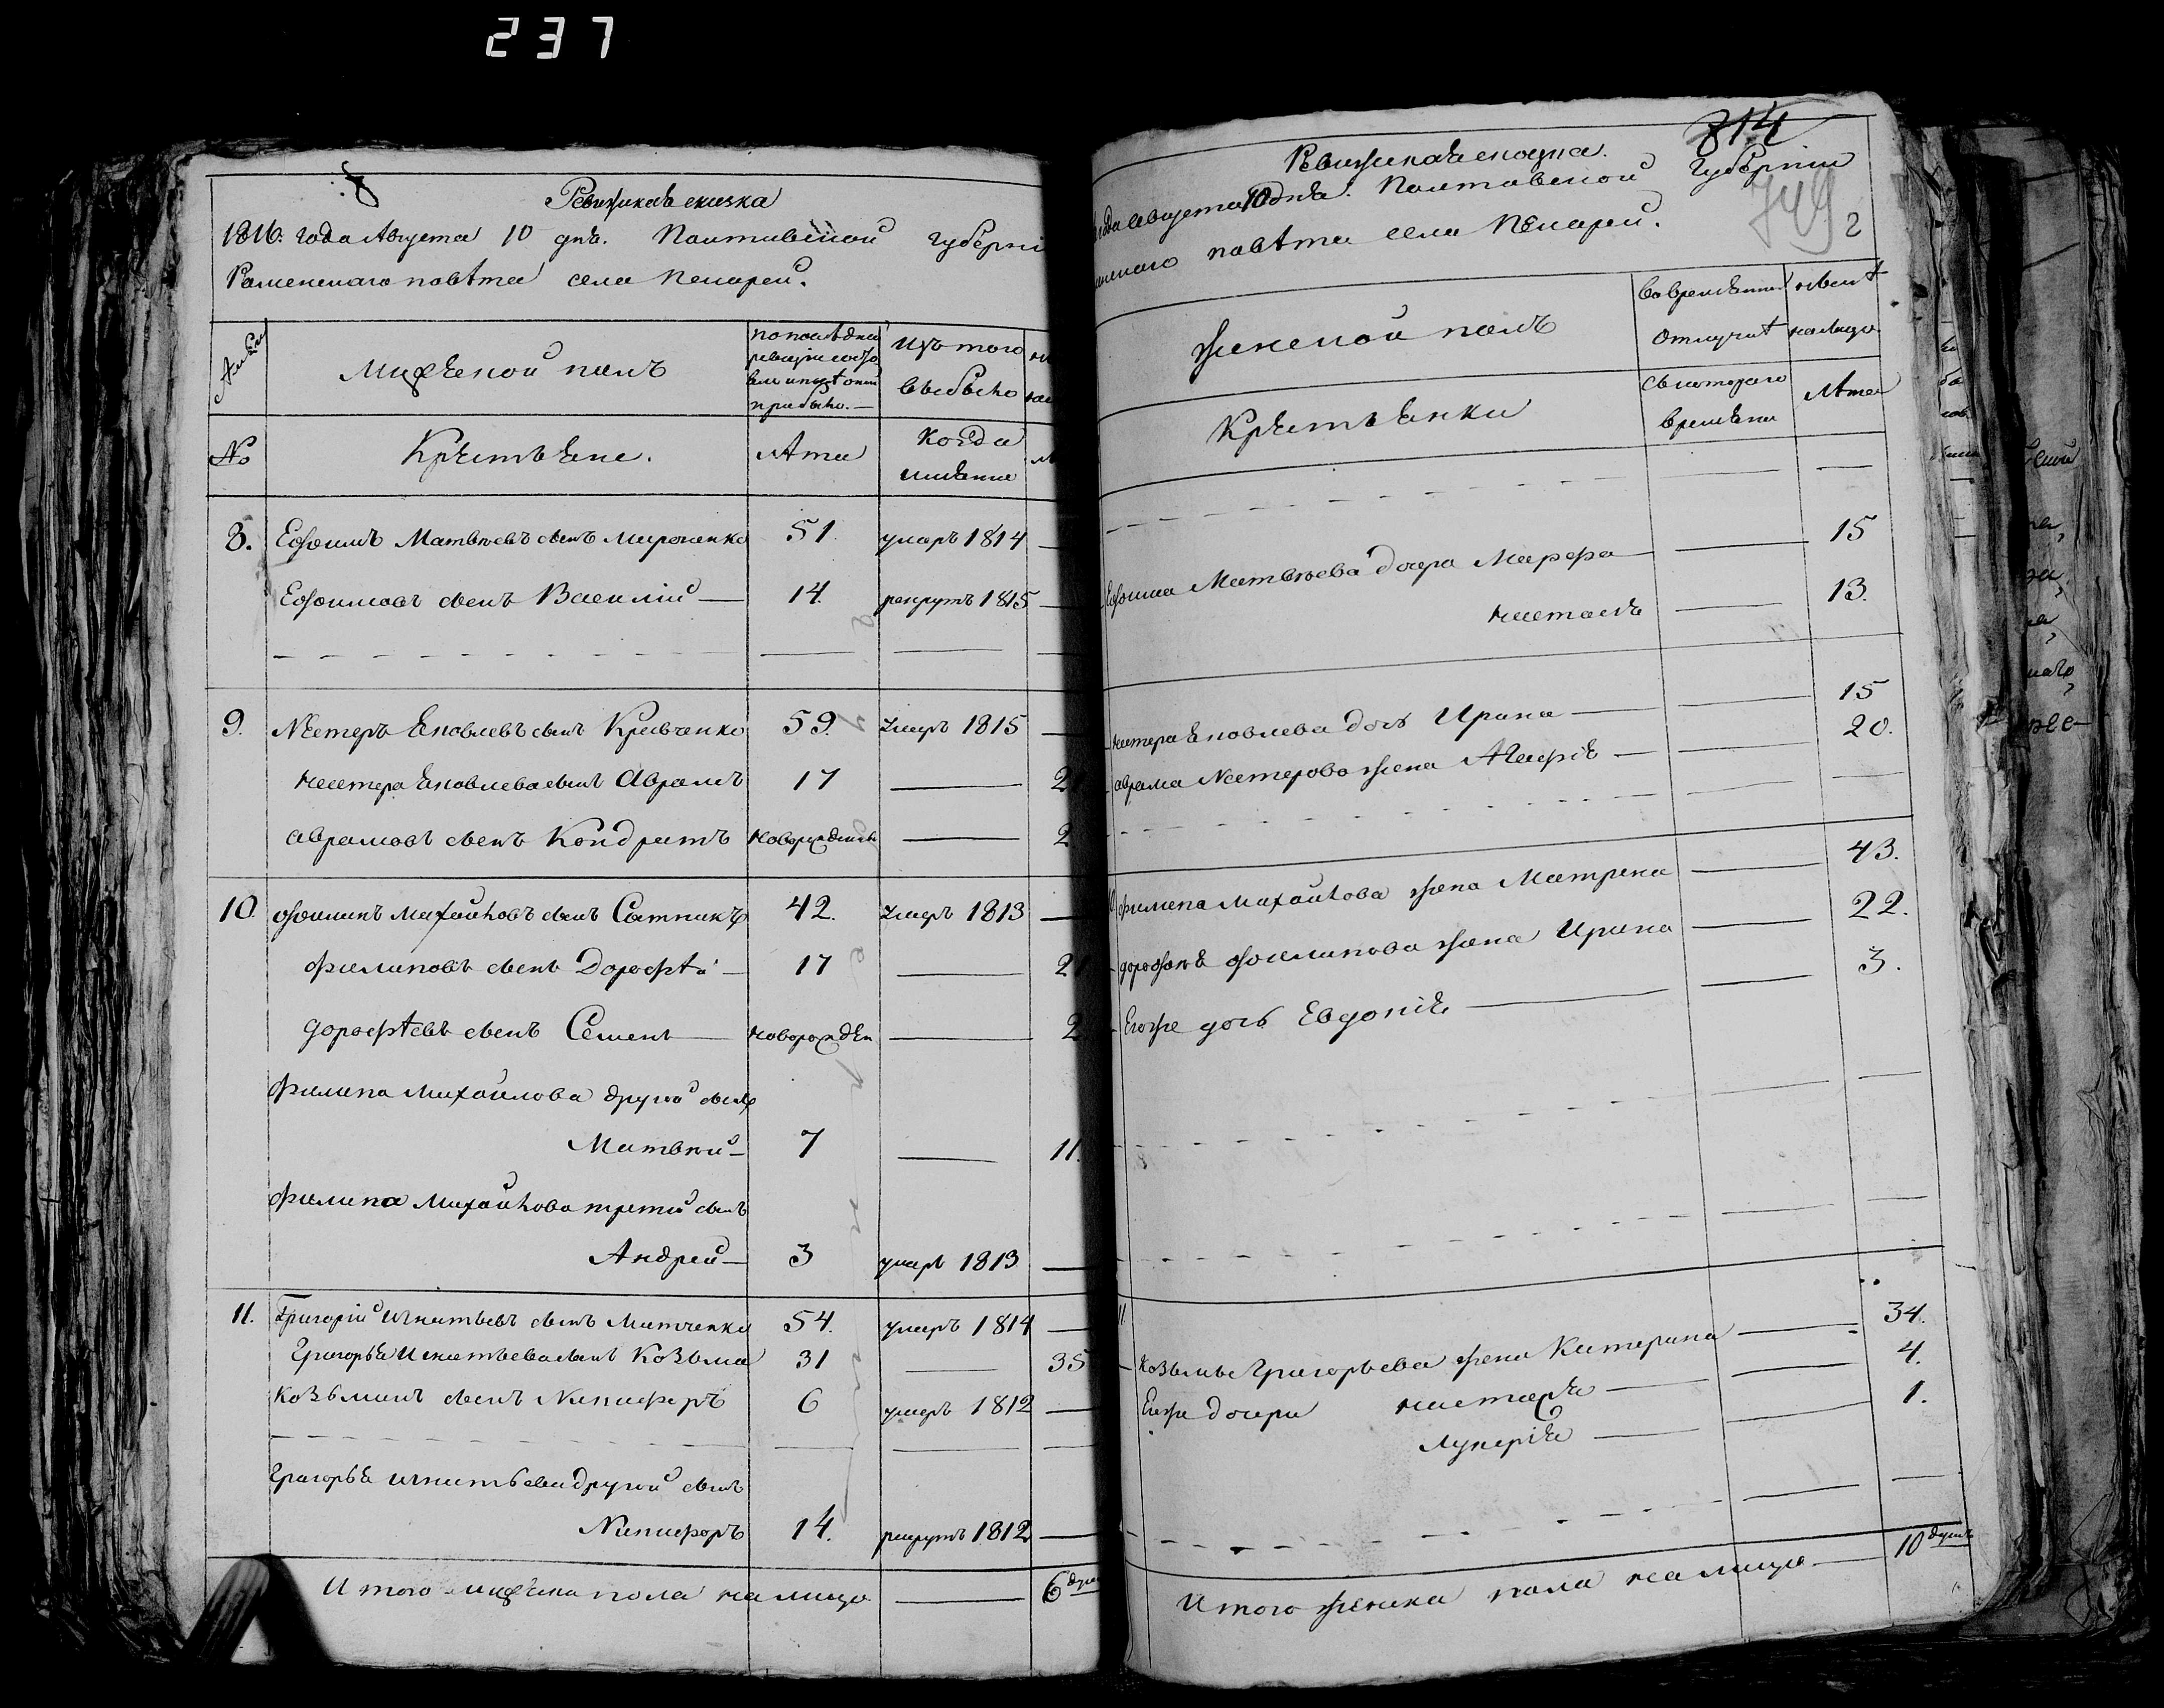 237
8
Ревижская сказка
1816. года Августа 10 дня. Полтавской губерні
Роменскаго повѣта села Пекарей.
Мужеской полъ
по последней
ревизіи состо
прибыло.
Изъ того
выбыло
№
Крестьяне.
Лѣта
Когда
имянно
8. Ефимъ Матвѣевъ сынъ Мироченко 51. умеръ 1814
Ефимовъ сынъ Василій 14. рекрутъ 1815
9. Нестеръ Яковлевъ сынъ Кривченко 59. умеръ 1815
Нестера Яковлева сынъ Аврамъ 17 2
Аврамовъ сынъ Кондратъ новорожденъ 2
10. Филипъ Михайловъ сынъ Сотникъ 42. умеръ 1813
Филиповъ сынъ Дорофѣй 17 2
Дорофѣевъ сынъ Семенъ новорожден 2
Филипа Михайлова другой сынъ
Матвей 7 11.
Филипа Михайлова третій сынъ
Андрей 3 умеръ 1813
11. Григорій Игнатьевъ сынъ Митченко 54. умеръ 1814
Григорья Игнатьева сынъ Козьма 31 35
Козьминъ сынъ Никифоръ 6 умеръ 1812
Григорья Игнатьева другой сынъ
Никифоръ 14. рекрутъ 1812
Итого мужеска пола на лицо 6 душ
814
749
2
Ревижская сказка.
года августа 10 дня. Полтавской Губерніи
повѣта села Пекарей.
Женской полъ
во временной
отлучкѣ
налицо
Крестьянки
съ котораго
времени
Лѣта
Ефима Матвѣева дочра Марфа 15
Настасья 13.
Нестера Яковлева дочь Ирина 15
Аврама Нестерова жена Агафія 20.
Филипа Михайлова жена Матрена 43.
Дорофея Филипова жена Ирина 22.
Егоже дочь Евдокія 3.
11
Козьмы Григорьева жена Катерина 34.
Егоже дочери Настасія 4.
Лукерія 1.
Итого женска пола на лицо 10 душъ